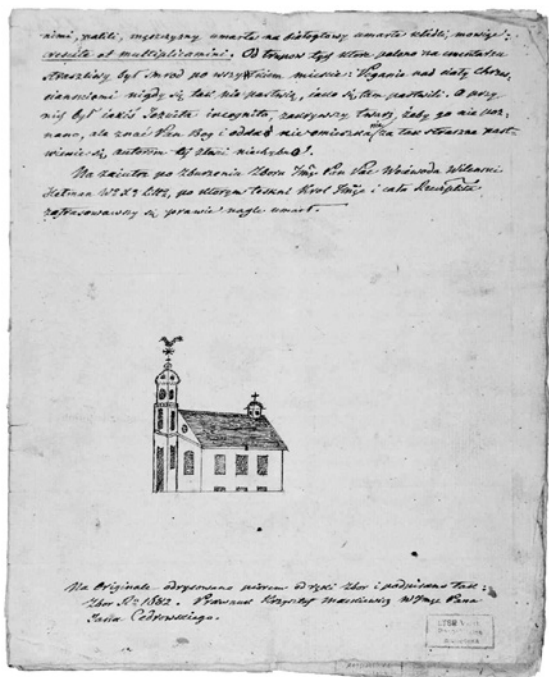 nimi, palili, męzczyzny umarłe na białogłowy umarłe kładli, mowiąc:
crescite et multiplicamini. Od trupow tych ktore palono na cmentarzu
straszliwy był smrod po wszystkiem miescie: Poganie nad ciały chrze-
sciańskiemi nigdy się tak nie pastwią, iako się tam pastwili. A przy
nich był iakiś Jezuita incognito, zakrywszy twarz, żeby go nie poz-
nano, ale znać Pan Bog i oddać nie omieszka za tak straszne past-
wienie się, autorom tej złości niechybną.
Na zaiutrz po zburzeniu Zboru Jmę Pan Pac Woiewoda Wilenski
Hetman W. X. Litt, po ktorym tesknił Krol Jmę i cała Rzeczpłta
zafrasowawszy się prawie nagle umarł.
Na Originale odrysowano piorem od ręki Zbor i podpisano tak:
Zbor Ao 1682. Prawnuk Krzysztof Mackiewicz WJmę Pana
Jana Cedrowskiego.